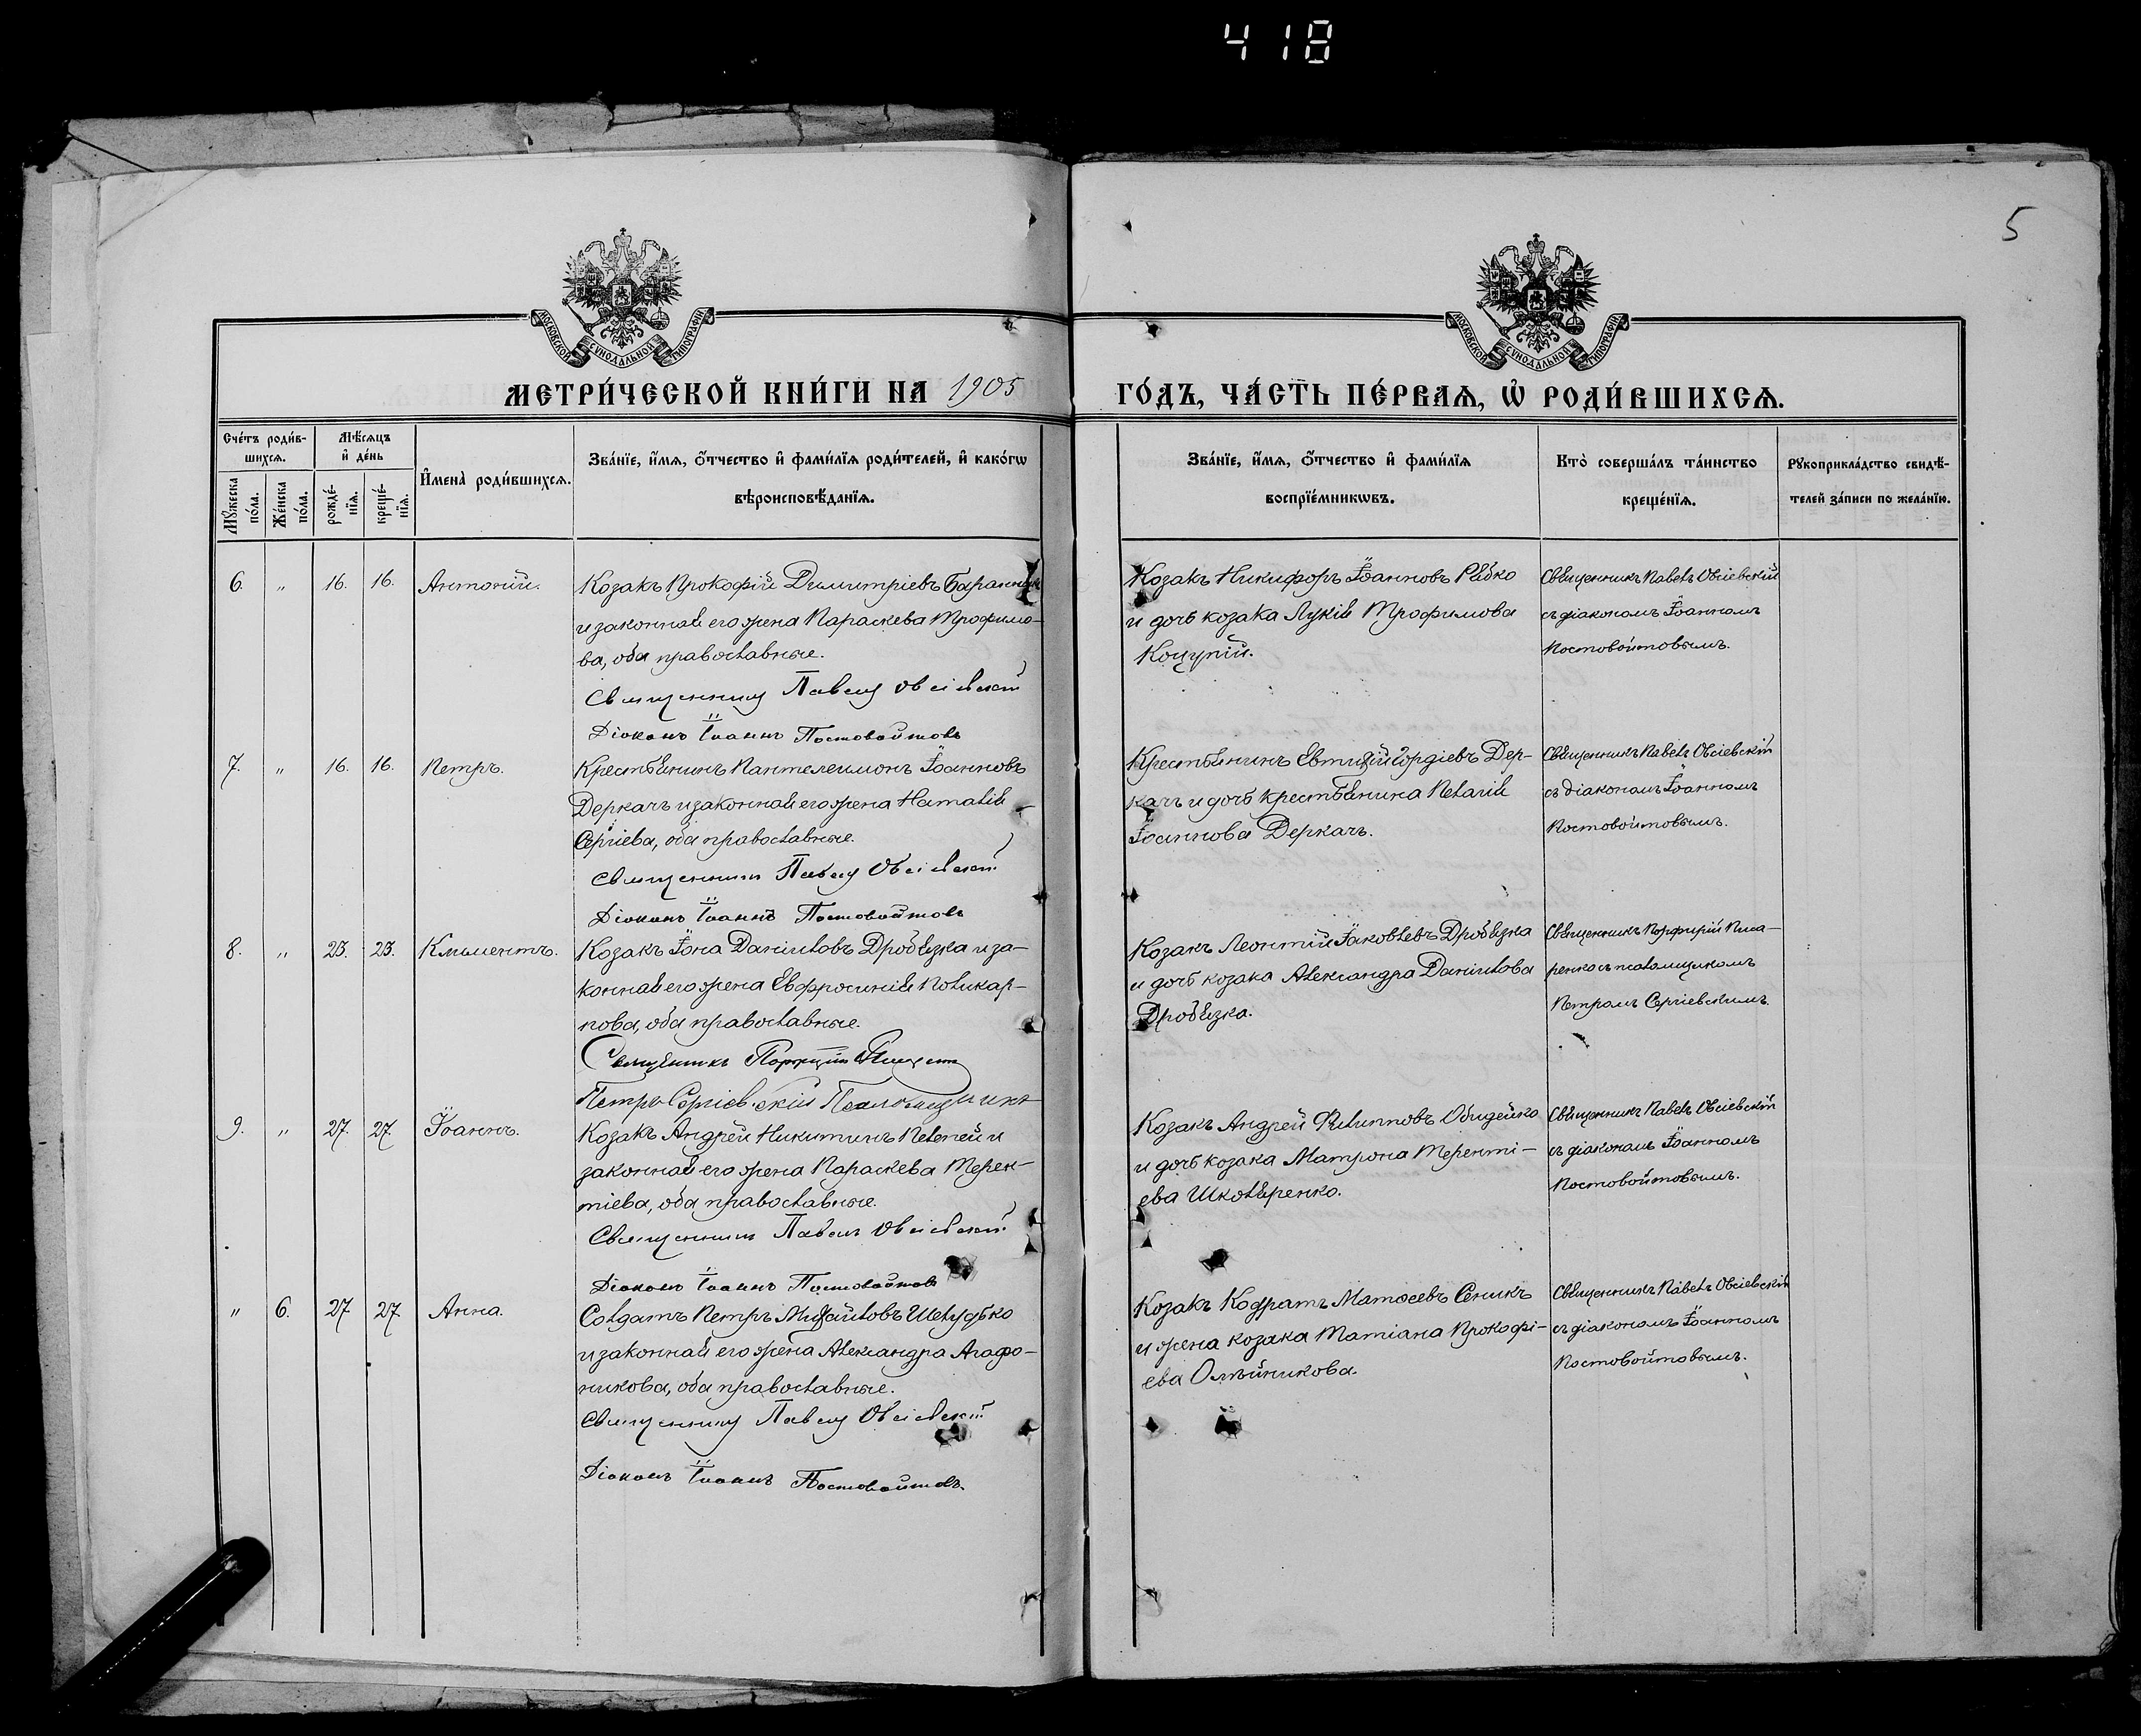 418
5
МОСКОВСКОЙ СѴНОДАЛЬНОЙ ТИПОГРАФІИ
МОСКОВСКОЙ СѴНОДАЛЬНОЙ ТИПОГРАФІИ
МЕТРИ́ЧЕСКОЙ КНИ́ГИ НА 1905
ГО́ДЪ, ЧА́СТЬ ПЕ́РВАѦ, Ѡ҆ РОДИ́ВШИХСѦ.
Сче́тъ роди́в-
шихсѧ.
Мѣ́сѧцъ
и҆ де́нь
И҆мена̀ роди́вшихсѧ.
Зва́нїе, и҆́мѧ, о҆́тчество и҆ фами́лїѧ роди́телей, и҆ како́гѡ
вѣроисповѣ́данїѧ.
Мꙋ́жеска по́ла.
Же́нска по́ла.
рожде́-нїѧ.
креще́-нїѧ.
Зва́нїе, и҆́мѧ, о҆́тчество и҆ фами́лїѧ
воспрїе́мникѡвъ.
Кто̀ соверша́лъ та́инство
креще́нїѧ.
Рꙋкоприкла́дство свидѣ́-
телей за́писи по жела́нїю.
6. " 16. 16. Антоній. Козакъ Прокофій Димитріевъ
и законная его жена Параскева Трофимо-
ва, оба православные.
Священникъ Павелъ Овсіевскій
Діаконъ Іоаннъ Постовойтовъ
Козакъ Никифоръ Іоанновъ Рябко
и дочь козака Лукія Трофимова
Коцупій.
Священникъ Павелъ Овсіевскій
съ діакономъ Іоанномъ
Постовойтовымъ.
7. " 16. 16. Петръ. Крестьянинъ Пантелеимонъ Іоанновъ
Деркачъ и законная его жена Наталія
Сергіева, оба православные.
Священникъ Павелъ Овсіевскій
Діаконъ Іоаннъ Постовойтовъ
Крестьянинъ Евтихій Гордіевъ Дер-
качъ и дочь крестьянина Пелагія
Іоаннова Деркачъ.
Священникъ Павелъ Овсіевскій
съ діакономъ Іоанномъ
Постовойтовымъ.
8. " 23. 23. Климентъ. Козакъ Іона Даніиловъ Дробязка и за-
конная его жена Евфросинія Поликар-
пова, оба православные.
Священникъ Порфирій Писаренко
Петръ Сергіевскій Псаломщикъ
Козакъ Леонтій Іаковлевъ Дробязка
и дочь козака Александра Даніилова
Дробязка.
Священникъ Порфирій Писа-
ренко съ псаломщикомъ
Петромъ Сергіевскимъ.
9. " 27. 27. Іоаннъ. Козакъ Андрей Никитинъ Пелепей и
законная его жена Параскева Терен-
тіева, оба православные.
Священникъ Павелъ Овсіевскій
Діаконъ Іоаннъ Постовойтовъ
Козакъ Андрей Филипповъ Обидейко
и дочь козака Матрона Теренті-
ева Школяренко.
Священникъ Павелъ Овсіевскій
съ діакономъ Іоанномъ
Постовойтовымъ.
" 6. 27 27. Анна. Солдатъ Петръ Михайловъ Шелудько
и законная его жена Александра Агафо-
никова, оба православные.
Священникъ Павелъ Овсіевскій
Діаконъ Іоаннъ Постовойтовъ.
Козакъ Кодратъ Матѳеевъ Сеникъ
и жена козака Татіана Прокофі-
ева Олѣйникова.
Священникъ Павелъ Овсіевскій
съ діакономъ Іоанномъ
Постовойтовымъ.